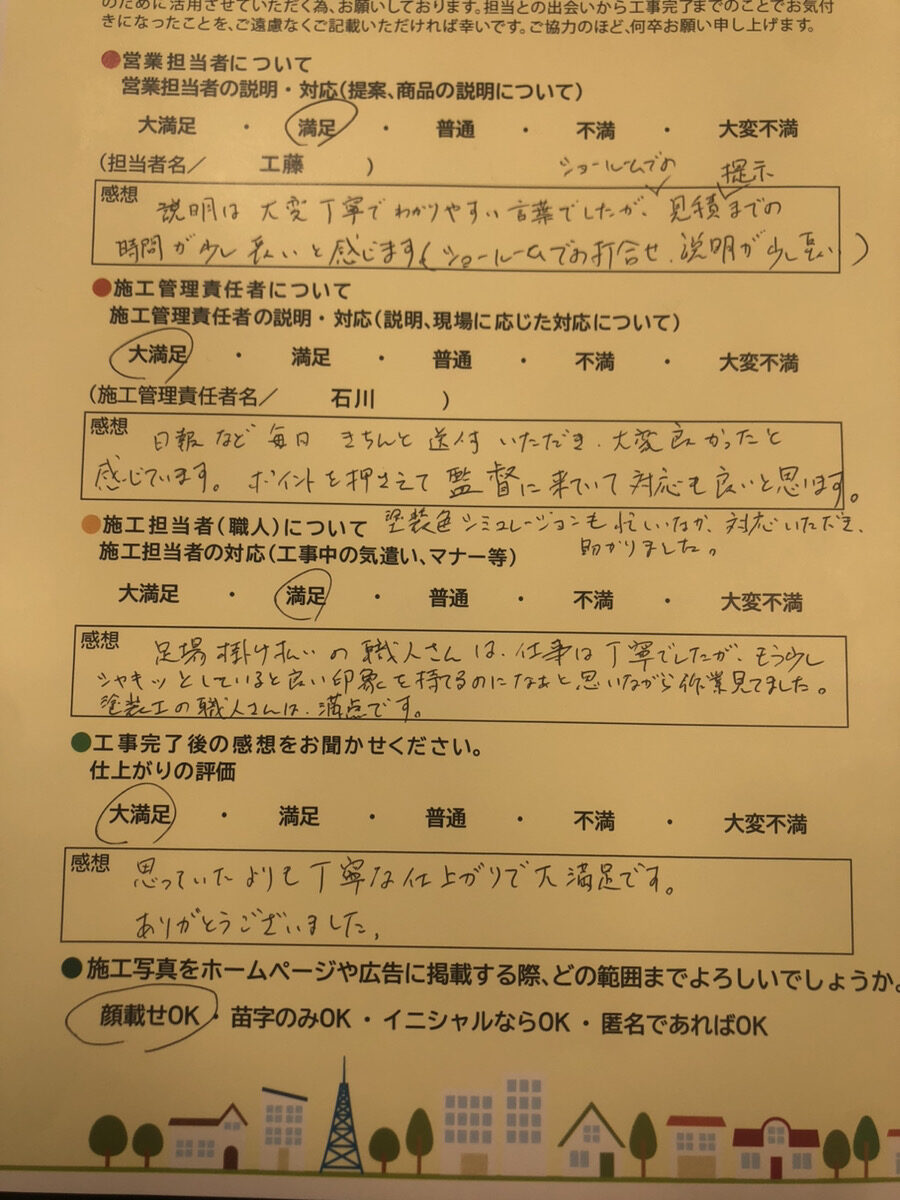 のために活用させていただく為、お願いしております。担当との出会いから工事完了までのことでお気付
きになったことを、ご遠慮なくご記載いただければ幸いです。ご協力のほど、何卒お願い申し上げます。
●営業担当者について
営業担当者の説明・対応(提案、商品の説明について)
大満足 ・ 満足 ・ 普通 ・ 不満 ・ 大変不満
(担当者名/ 工藤 )
ショールームでの 提示
感想
説明は大変丁寧でわかりやすい言葉でしたが、見積までの
時間が少し長いと感じます(ショールームでのお打合せ、説明が少し長い)
●施工管理責任者について
施工管理責任者の説明・対応(説明、現場に応じた対応について)
大満足 ・ 満足 ・ 普通 ・ 不満 ・ 大変不満
(施工管理責任者名/ 石川 )
感想
日報など毎日きちんと送付いただき、大変良かったと
感じています。ポイントを押さえて監督に来ていて対応も良いと思います。
塗装色シミュレーションも忙しいなか、対応いただき、
助かりました。
●施工担当者(職人)について
施工担当者の対応(工事中の気遣い、マナー等)
大満足 ・ 満足 ・ 普通 ・ 不満 ・ 大変不満
感想
足場掛け払いの職人さんは、仕事は丁寧でしたが、もう少し
シャキッとしていると良い印象を持てるのになぁと思いながら作業見てました。
塗装工の職人さんは、満点です。
●工事完了後の感想をお聞かせください。
仕上がりの評価
大満足 ・ 満足 ・ 普通 ・ 不満 ・ 大変不満
感想
思っていたよりも丁寧な仕上がりで大満足です。
ありがとうございました。
●施工写真をホームページや広告に掲載する際、どの範囲までよろしいでしょうか。
顔載せOK ・ 苗字のみOK ・ イニシャルならOK ・ 匿名であればOK